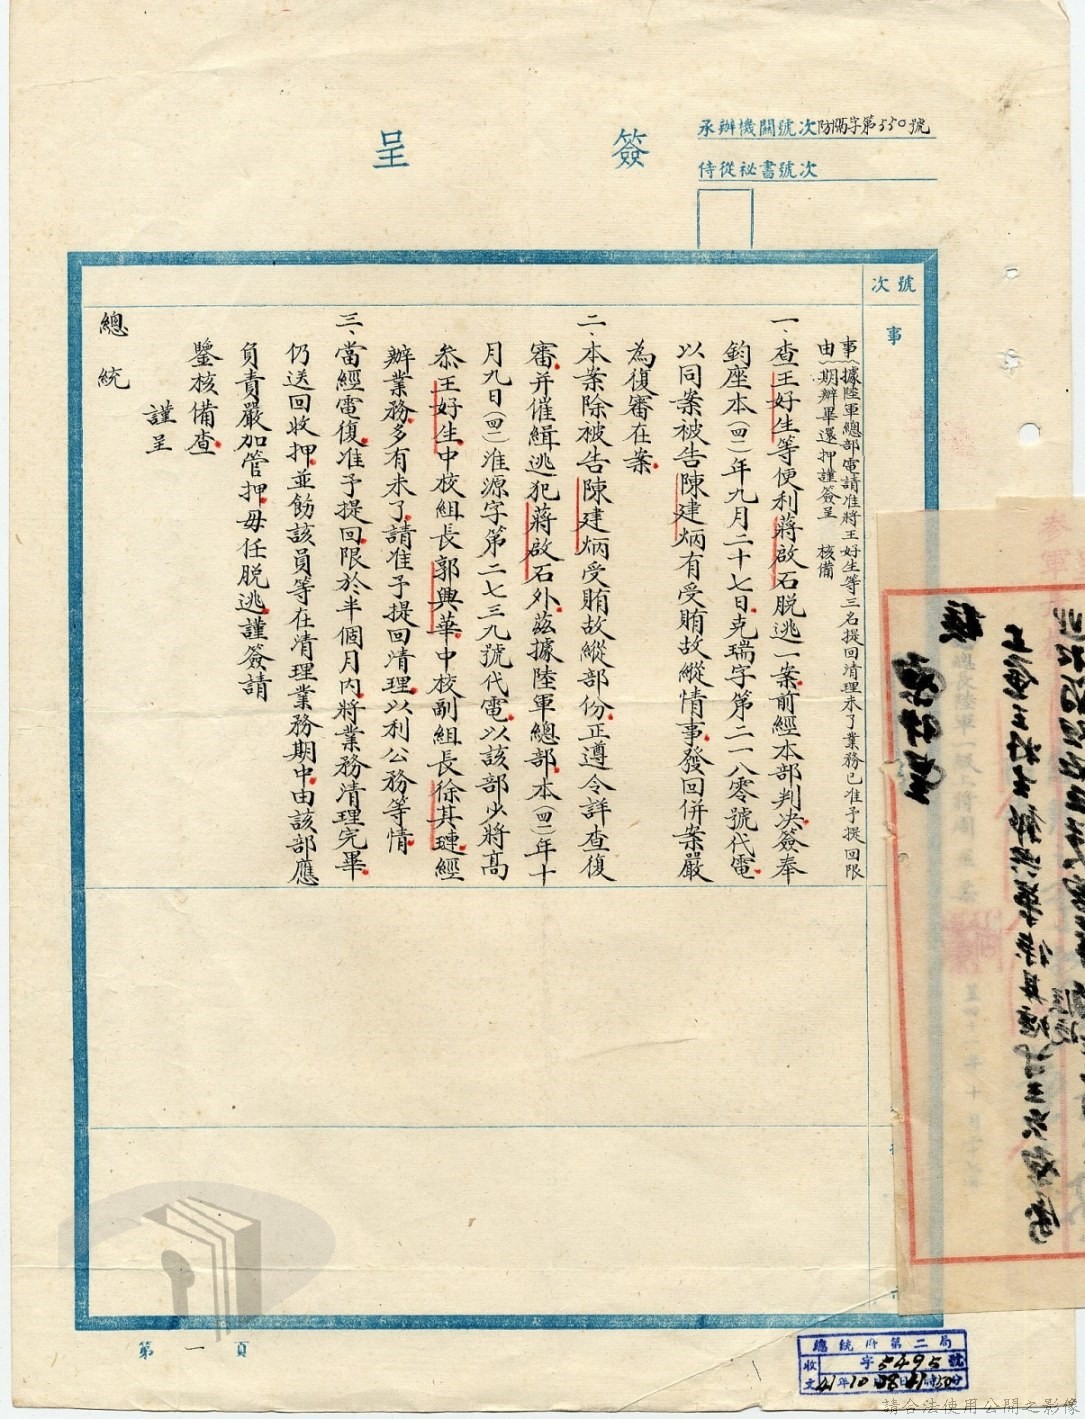 簽呈
承辦機關號次防隔字第550號
侍從祕書號次
號次
事
事由
據陸軍總部電請准將王好生等三名提回清理未了業務已准予提回限
期辦畢還押謹簽呈 核備
一、查王好生等便利蔣啟石脫逃一案前經本部判決簽奉
鈞座本(四一)年九月二十七日克瑞字第二一八零號代電
以同案被告陳建炳有受賄故縱情事發回併案嚴
為復審在案
二、本案除被告陳建炳受賄故縱部份正遵令詳查復
審并催緝逃犯蔣啟石外茲據陸軍總部本(四一)年十
月九日(四一)准源字第二七三九號代電以該部少將高
參王好生中校組長郭興華中校副組長徐其璉經
辦業務多有未了請准予提回清理以利公務等情
三、當經電復准予提回限於半個月內將業務清理完畢
仍送回收押並飭該員等在清理業務期中由該部應
負責嚴加管押毋任脫逃謹簽請
鑒核備查
謹呈
總統
第一頁
總統府第二局
收文 字5495號
41年10月
請合法使用公開之影像